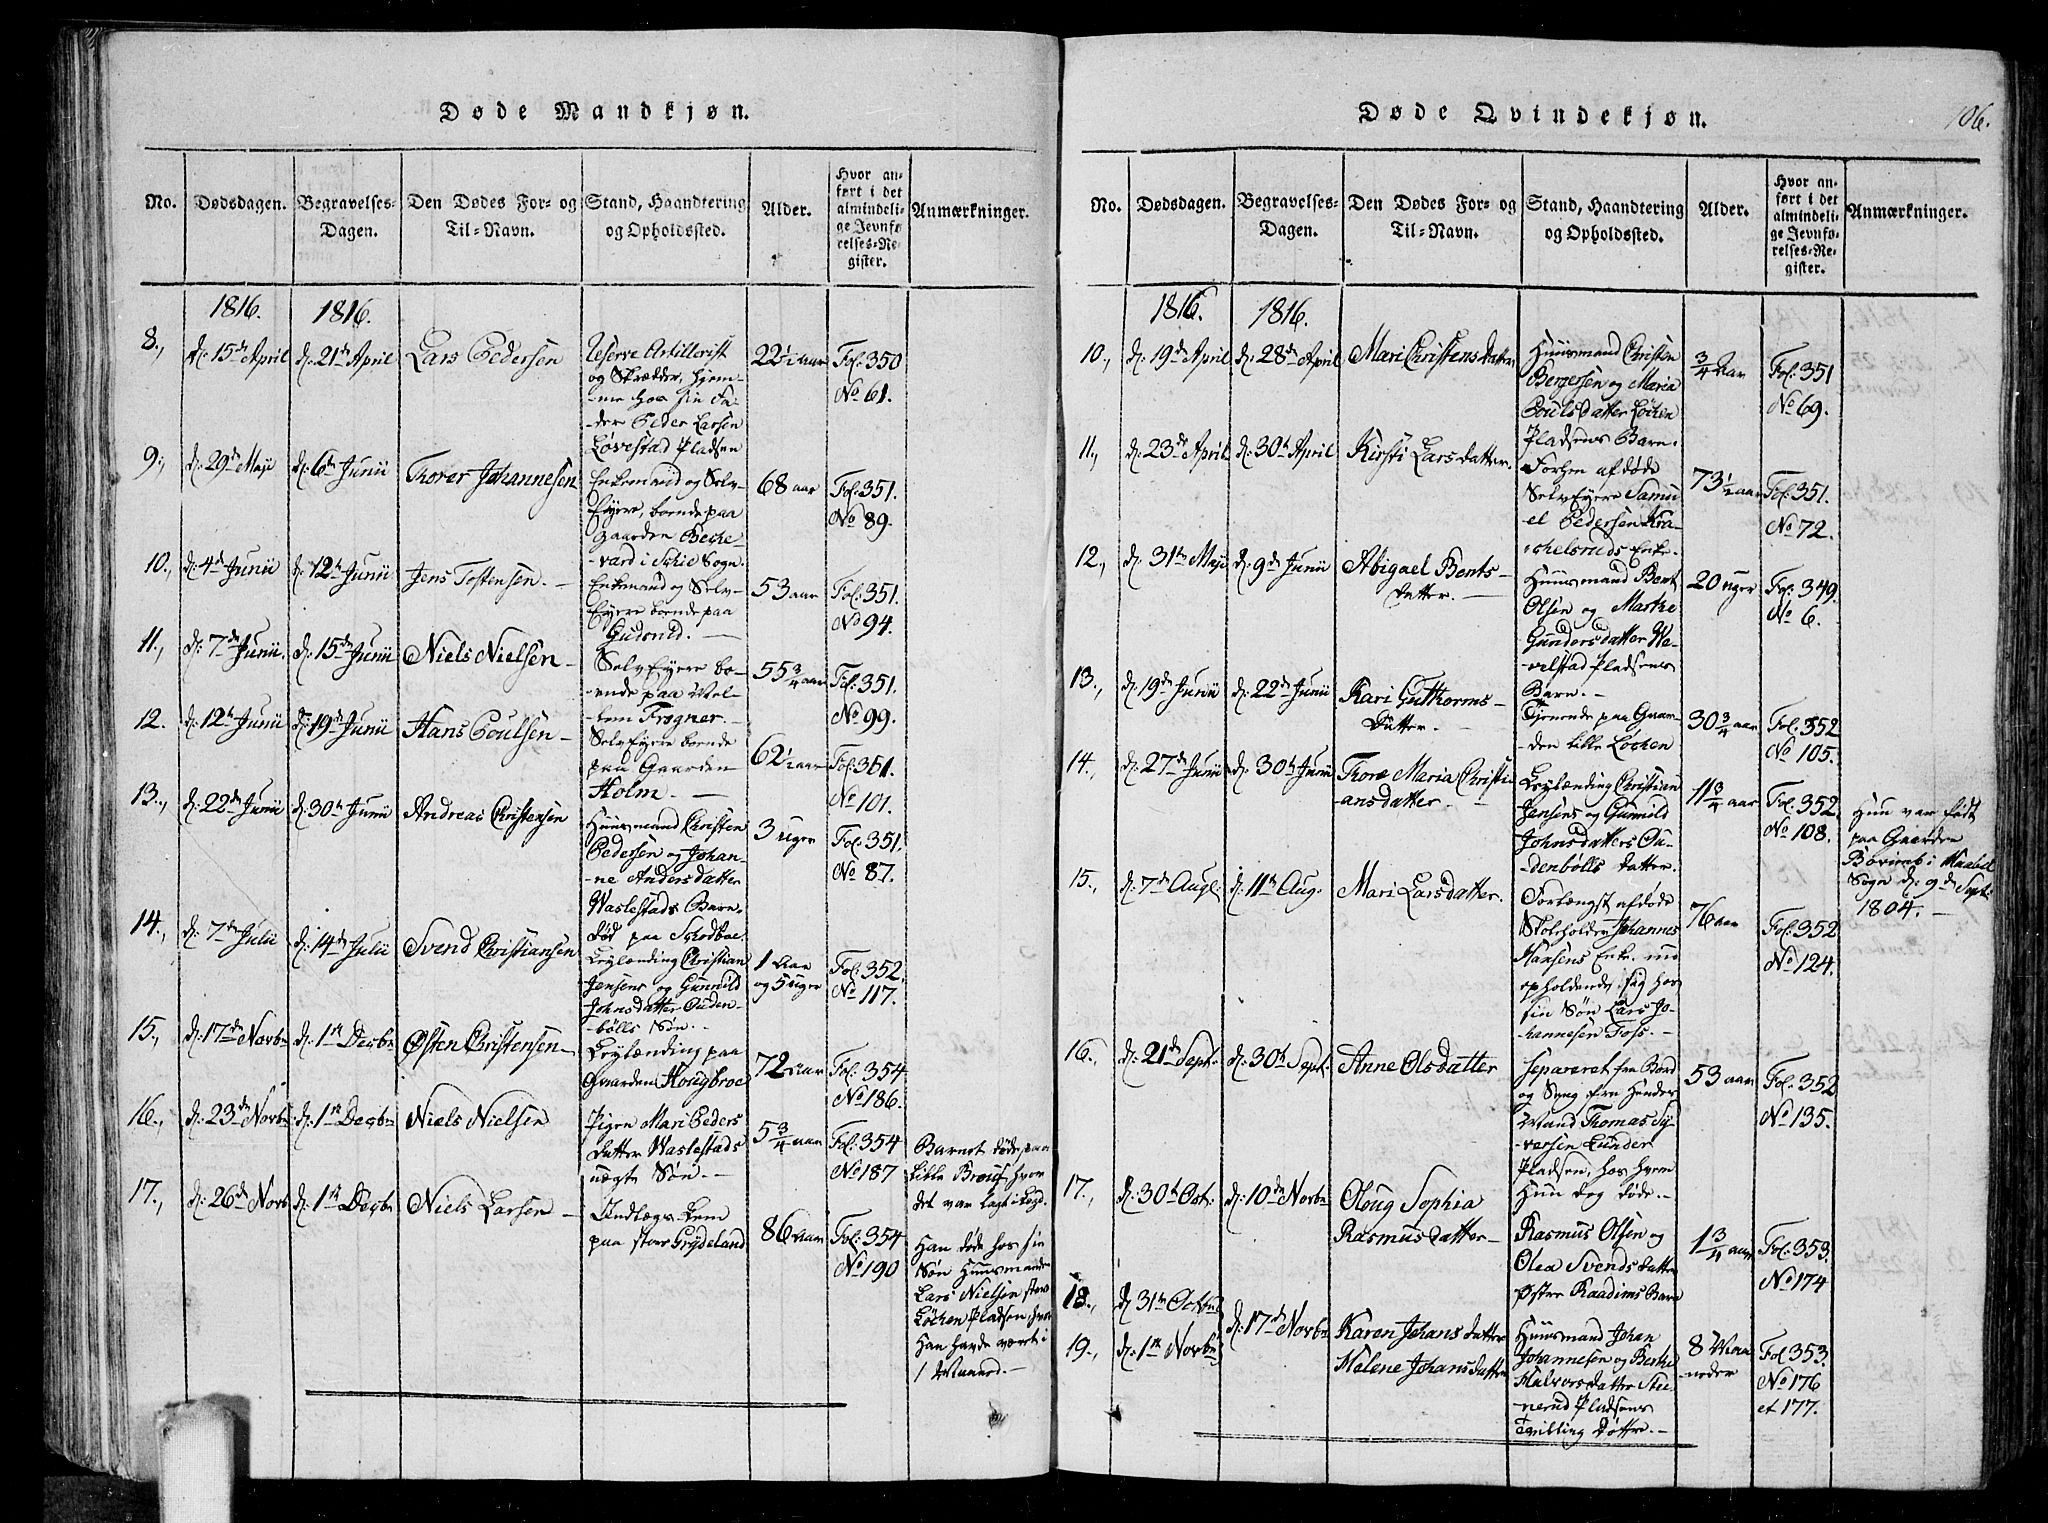 Døde Mandkjøn.
No.
Dødsdagen.
Begravelses-
Dagen.
Den Dødes For- og
Til-Navn.
Stand, Haandtering
og Opholdssted.
Alder.
Hvor an-
ført i det
almindeli-
ge Jevnfø-
relses-Re-
gister.
Anmærkninger.
1816.
1816.
8.,
d. 15de April
d. 21de April
Lars Pedersen
Reserve Artillerist
og Skrædder, hjem-
me hos sin Fa-
der Peder Larsen
Løvestad Pladsen
22½ aar
Fol. 350
No 61.
9.,
d. 29de Maji
d. 6te Junii
Torer Johannesen
Enkemand og Selv-
Ejere, boende paa
Gaarden
i Schie Sogn.
68 aar
Fol. 351.
No 89.
10.,
d. 4de Junii
d. 12te Junii
Jens Tostensen. -
Enkemand og Selv-
Ejere boende paa
Gudsrud. -
53 aar
Fol. 351.
No 94.
11.,
d. 7de Junii.
d. 15de Junii
Niels Nielsen -
SelvEjere bo-
-ende paa Mel-
lem Frogner. -
55 ¾ aar
Fol. 351.
No 99.
12.
d. 12te Junii
d. 19de Junii
Hans Poulsen -
SelvEjere boende
paa Gaarden
Holm. -
62½ aar
Fol. 351.
No 101.
13.,
d. 22de Junii
d. 30te Junii
Andreas Christensen
Huusmand Christen
Pedersen og Johan-
-ne Andersdatter
Waslestads Barn.
død paa
3 uger
Fol. 351.
No 87.
14.,
d. 7de Julii
d. 14de Julii
Svend Christiansen
Leylænding Christian
Jensens og Gunnild
Johnsdatter Ouden-
-bölls Søn. -
1 Aar
og 5 uger
Fol. 352.
No 117.
15.,
d. 17de Novbr
d. 1ste Decbr
Østen Christensen -
Leylænding paa
Gaarden Hougbroe
72 aar
Fol. 354
No 186.
16.,
d. 23de Novbr
d. 1ste Decbr
Niels Nielsen
Pigen Mari Peders
datter Waslestads
uægte Søn. -
5 ¾ aar
Fol. 354
No 187
Barnet døde paa
Lille hvor
det var lagt i Lægd.
17.,
d. 26de Novb
d. 1ste Decbr
Niels Larsen -
Indlægs-Lem
paa store Grydeland
86 aar
Fol. 354
No 190
Han døde hos sin
Søn Huusmanden
Lars Nielsen store
Løchen Pladsen hvor
Han havde været i
1 Maaned. -
Døde Qvindekjøn.
106.
No.
Dødsdagen.
Begravelses-
Dagen.
Den Dødes For- og
Til-Navn.
Stand, Haandtering
og Opholdssted.
Alder.
Hvor an-
ført i det
almindeli-
ge Jevnfø-
relses-Re-
gister.
Anmærkninger.
1816.
1816.
10.,
d. 19de April
d. 28de April
Mari Christensdatter
Huusmand Christen
Bergersen og Maria
Poulsdatter Løchen
Pladsens Barn.
¾ Aar
Fol. 351
No 69.
11.,
d. 23de April
d. 30te April
Kirsti Larsdatter.
Forhen afdøde
SelvEjere Samu
el Pedersen Kra-
-chelsruds Enke.
73 ½ aar
Fol. 351.
No 72.
12.,
d. 31te Maji
d. 9de Junii
Abigael Bents-
datter. -
Huusmand Bent
Olsen og Marthe
Gundersdatter We-
-velstad Pladsens
Barn. -
20 uger
Fol. 349.
No 6.
13.,
d. 19de Junii
d. 22de Junii
Kari Gutthorms-
Datter. -
Tjenende paa Gaar-
den lille Løchen
30 ¾ aar
Fol. 352
No 105.
14.,
d. 27de Junii
d. 30te Junii
Thore Maria Christi
-ansdatter. -
Leylænding Christian
Jensens og Gunnild
Johnsdatters Ou-
-denbölls datter.
11 ¾ aar
Fol. 352.
No 108.
Hun var født
paa Gaarden
i
Sogn d. 9de Septbr
1804. -
15.,
d. 7de Aug.
d. 11te Aug.
Mari Larsdatter.
Forlængst afdøde
Skoleholder Johannes
Hansens Enke. nu
opholdende sig hos
sin Søn Lars Jo-
-hannesen Foss. -
76 aar
Fol. 352
No 124.
16.,
d. 21de Sept.
d. 30te Sept.
Anne Olsdatter
Separeret fra Bord
og Seng fra Hendes
Mand Thomas Sy-
-versen Lunder
Pladsen, hos hvem
Hun dog døde. -
53 aar
Fol. 352
No 135.
17.,
d. 30te Oct.
d. 10de Novbr
Oloug Sophia
Rasmusdatter -
Rasmus Olsen og
Olea Svendsdatter
Øster Raadims Barn
1 ¾ aar
Fol. 353.
No 174
18.,
d. 31te Octbr
d. 17de Novbr
Karen Johansdatter
19.,
d. 1ste Novbr
Helene Johansdatter
Huusmand Johan
Johannesen og Berthe
Halvorsdatter Stee-
nerud Pladsens
Tvilling Døttre. -
8 Maa
-neder
Fol. 353.
No 176
et 177.